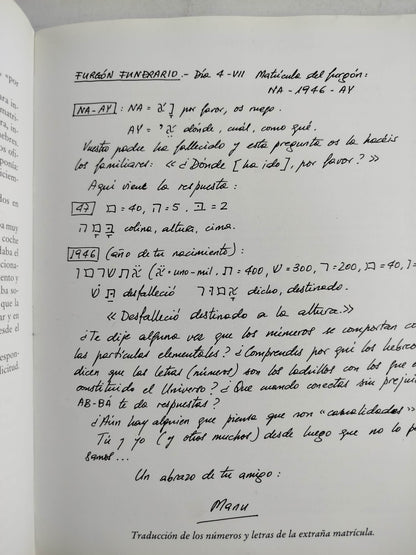 «por
ara in-
matrí-
in in-
dos en
ba muy
coche
daba el
ciona-
iento y
ba so-
que la
r y en
sde el
respon-
licitud.
FURGÓN FUNERARIO.- Día 4-VII Matrícula del furgón:
NA-1946-AY
NA-AY: NA = נָא por favor, os ruego.
AY = אַי dónde, cuál, como qué.
Vuestro padre ha fallecido y esta pregunta os la hacéis
los familiares: « ¿Dónde [ha ido], por favor?»
Aquí viene la respuesta:
47 מ = 40, ה = 5, ב = 2
בָּמָה colina, altura, cima.
1946 (año de tu nacimiento): אתשרמו (א = uno-mil, ת = 400, ש = 300, ר = 200, מ = 40, ו
תַּשׁ desfalleció אָמוּר dicho, destinado.
«Desfalleció destinado a la altura.»
¿Te dije alguna vez que los números se comportan co
las partículas elementales? ¿Comprendes por qué los hebreo
dicen que las letras (números) son los ladrillos con los que e
constituido el Universo? ¿Que cuando conectas sin prejui
AB-BÁ te da respuestas?
¿Aún hay alguien que piensa que son «casualidades»
Tú y yo (y otros muchos) desde luego que no lo p
samos...
Un abrazo de tu amigo:
Manu
Traducción de los números y letras de la extraña matrícula.